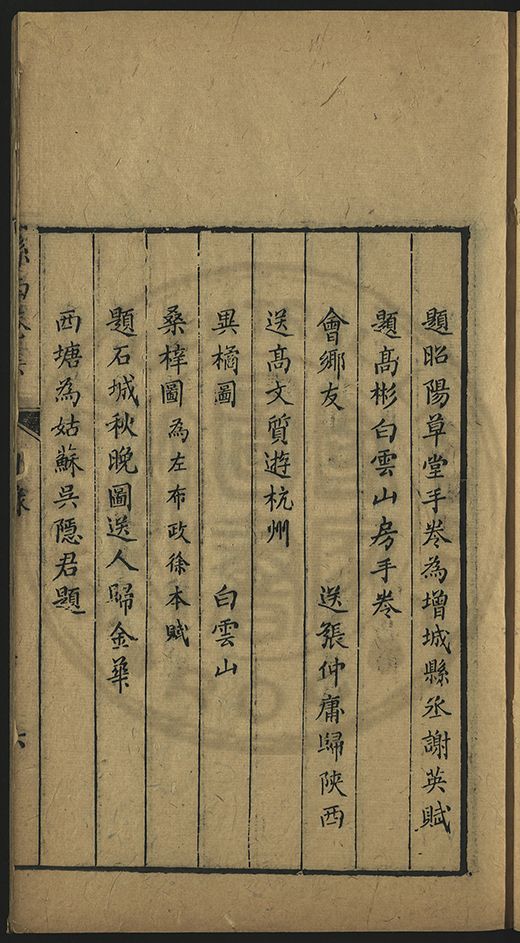 題昭陽草堂手卷為增城縣丞謝英賦
題高彬白雲山房手卷
會鄉友　送張仲庸歸陝西
送高文質遊杭州
異橘圖　白雲山
桑梓圖為左布政徐本賦
題石城秋晚圖送人歸金華
西塘為姑蘇吳隱君題